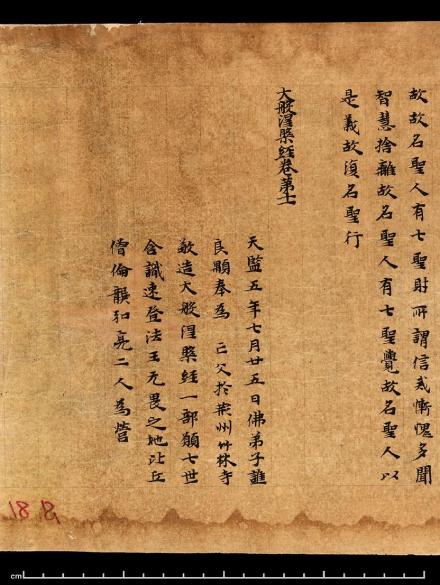 故故名聖人有七聖財所謂信戒慚愧多聞
智慧捨離故名聖人有七聖覺故名聖人以
是義故復名聖行
大般涅槃經卷第十一
天監五年七月廿五日佛弟子譙
良顒奉為 亡父於荊州竹林寺
敬造大般涅槃經一部願七世
含識速登法王无畏之地比丘
僧倫龔和亮二人為營
cm